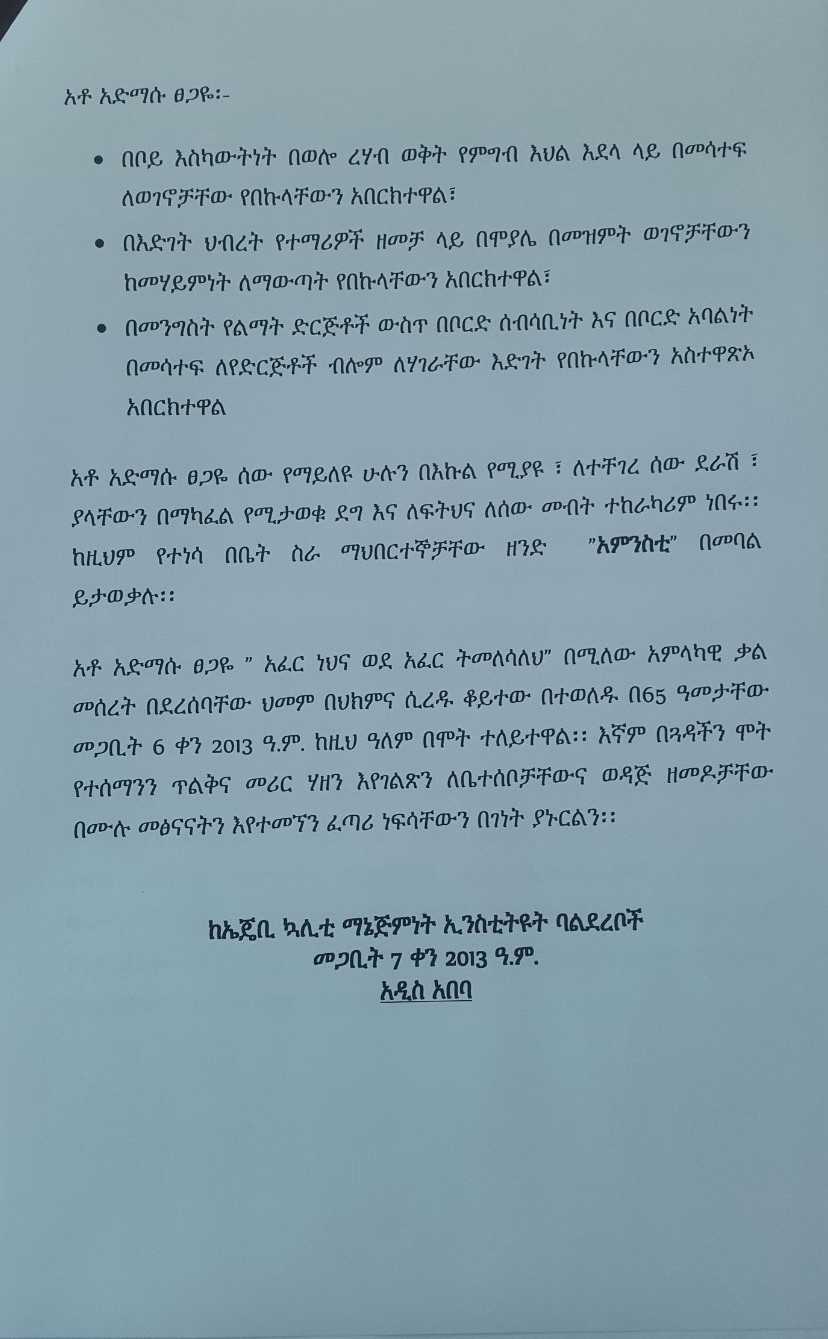 አቶ አድማሱ ፀጋዬ፡-
• በቦይ እስካውትነት በወሎ ረሃብ ወቅት የምግብ እህል እደላ ላይ በመሳተፍ
ለወገኖቻቸው የበኩላቸውን አበርክተዋል፣
• በእድገት ህብረት የተማሪዎች ዘመቻ ላይ በሞያሌ በመዝምት ወገኖቻቸውን
ከመሃይምነት ለማውጣት የበኩላቸውን አበርክተዋል፣
• በመንግስት የልማት ድርጅቶች ውስጥ በቦርድ ሰብሳቢነት እና በቦርድ አባልነት
በመሳተፍ ለየድርጅቶች ብሎም ለሃገራቸው እድገት የበኩላቸውን አስተዋጽኦ
አበርክተዋል
አቶ አድማሱ ፀጋዬ ሰው የማይለዩ ሁሉን በእኩል የሚያዩ ፣ ለተቸገረ ሰው ደራሽ ፣
ያላቸውን በማካፈል የሚታወቁ ደግ እና ለፍትህና ለሰው መብት ተከራካሪም ነበሩ፡፡
ከዚህም የተነሳ በቤት ስራ ማህበርተኞቻቸው ዘንድ ”አምንስቲ” በመባል
ይታወቃሉ፡፡
አቶ አድማሱ ፀጋዬ ” አፈር ነህና ወደ አፈር ትመለሳለህ” በሚለው አምላካዊ ቃል
መሰረት በደረሰባቸው ህመም በህክምና ሲረዱ ቆይተው በተወለዱ በ65 ዓመታቸው
መጋቢት 6 ቀን 2013 ዓ.ም. ከዚህ ዓለም በሞት ተለይተዋል፡፡ እኛም በጓዳችን ሞት
የተሰማንን ጥልቅና መሪር ሃዘን እየገልጽን ለቤተሰቦቻቸውና ወዳጅ ዘመዶቻቸው
በሙሉ መፅናናትን እየተመኘን ፈጣሪ ነፍሳቸውን በገነት ያኑርልን፡፡
ከኤጄቢ ኳሊቲ ማኔጅምነት ኢንስቲትዩት ባልደረቦች
መጋቢት 7 ቀን 2013 ዓ.ም.
አዲስ አበባ